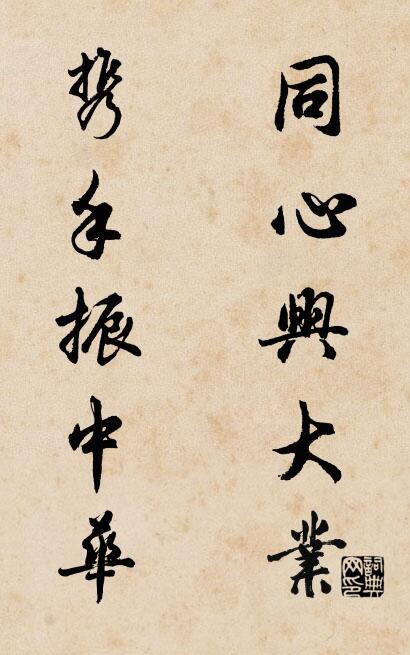 同心興大業
携手振中華
詞典網印